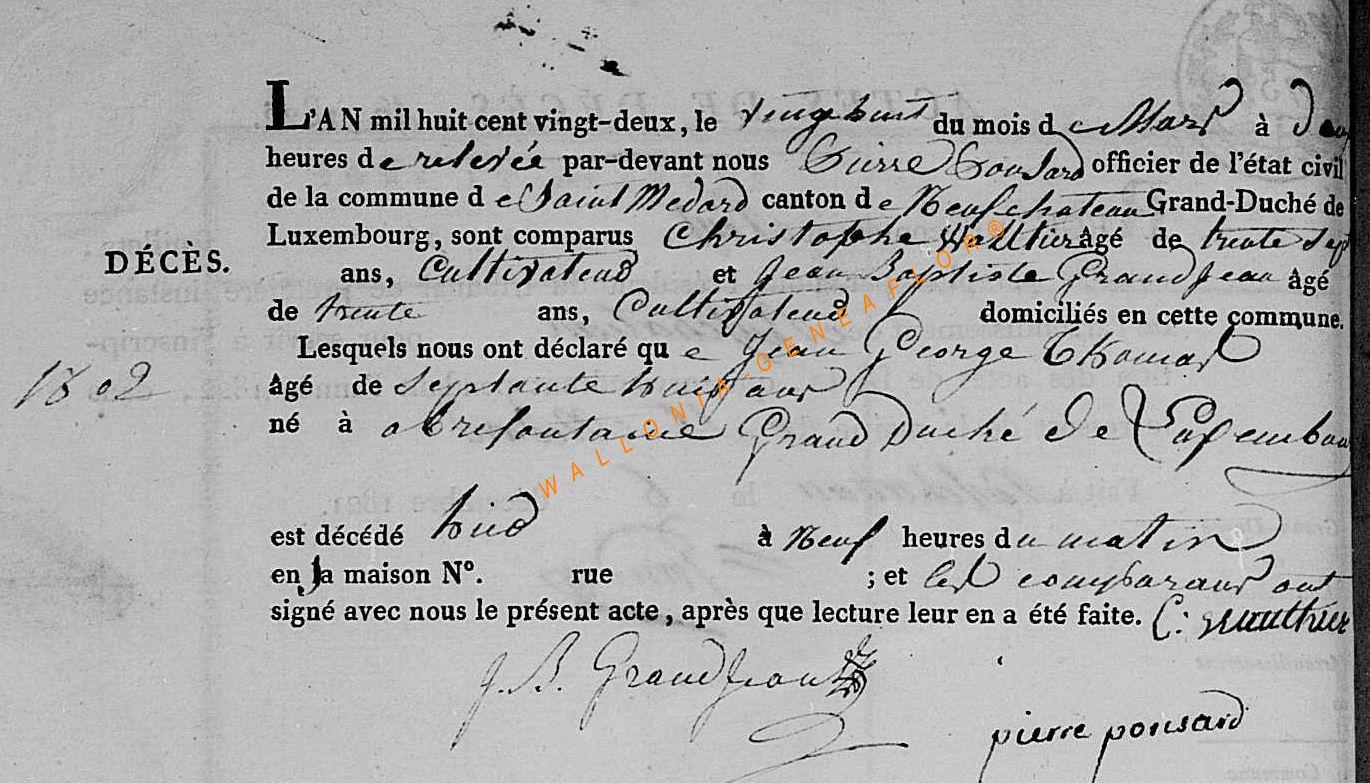 L'AN mil huit cent vingt-deux, le vingt huit du mois de Mars à deux
heures de relevée par-devant nous Pierre Ponsard officier de l'état civil
de la commune de Saint Medard canton de Neufchateau Grand-Duché de
Luxembourg, sont comparus Christophe âgé de trente sept
DÉCÈS.
ans, Cultivateur et Jean Baptiste Grandjean âgé
de trente ans, Cultivateur domiciliés en cette commune.
Lesquels nous ont déclaré que Jean George Thomas
1802
âgé de septante huit ans
né à Grand Duché de Luxembourg
est décédé à Neuf heures du matin
en la maison N°. rue ; et les comparans ont
signé avec nous le présent acte, après que lecture leur en a été faite. C:
J. B. Grandjean
pierre ponsard
WALLONIA-GENEAFLOR©